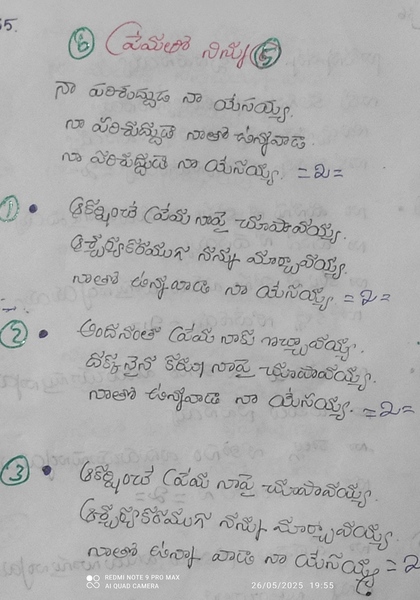 5.
⑥ ప్రేమతో నిన్ను ⑤
నా పరిశుద్దుడ నా యేసయ్య.
నా పరిశుద్దుడె నాతో ఉన్నవాడ.
నా పరిశుద్దుడె నా యేసయ్య. =2=
① • ఆకర్షించే ప్రేమ నాపై చూపావయ్య.
ఆశ్చర్యకరముగ నన్ను మార్చావయ్య.
నాతో ఉన్నవాడ నా యేసయ్య =2=
② • అందనంత ప్రేమ నాకు ఇచ్చావయ్య.
దక్కనైన కరుణ నాపై చూపావయ్య.
నాతో ఉన్నవాడ నా యేసయ్య. =2=
③ • ఆకర్షించే ప్రేమ నాపై చూపావయ్య.
ఆశ్చర్యకరముగ నన్ను మార్చావయ్య.
నాతో ఉన్న వాడ నా యేసయ్య =2
REDMI NOTE 9 PRO MAX
AI QUAD CAMERA
26/05/2025 19:55